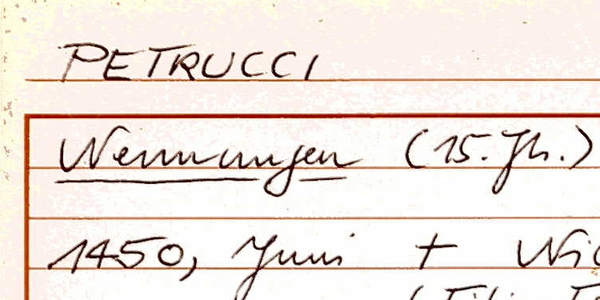 PETRUCCI
Nennungen (15. Jh.)
1450, Juni + Nic